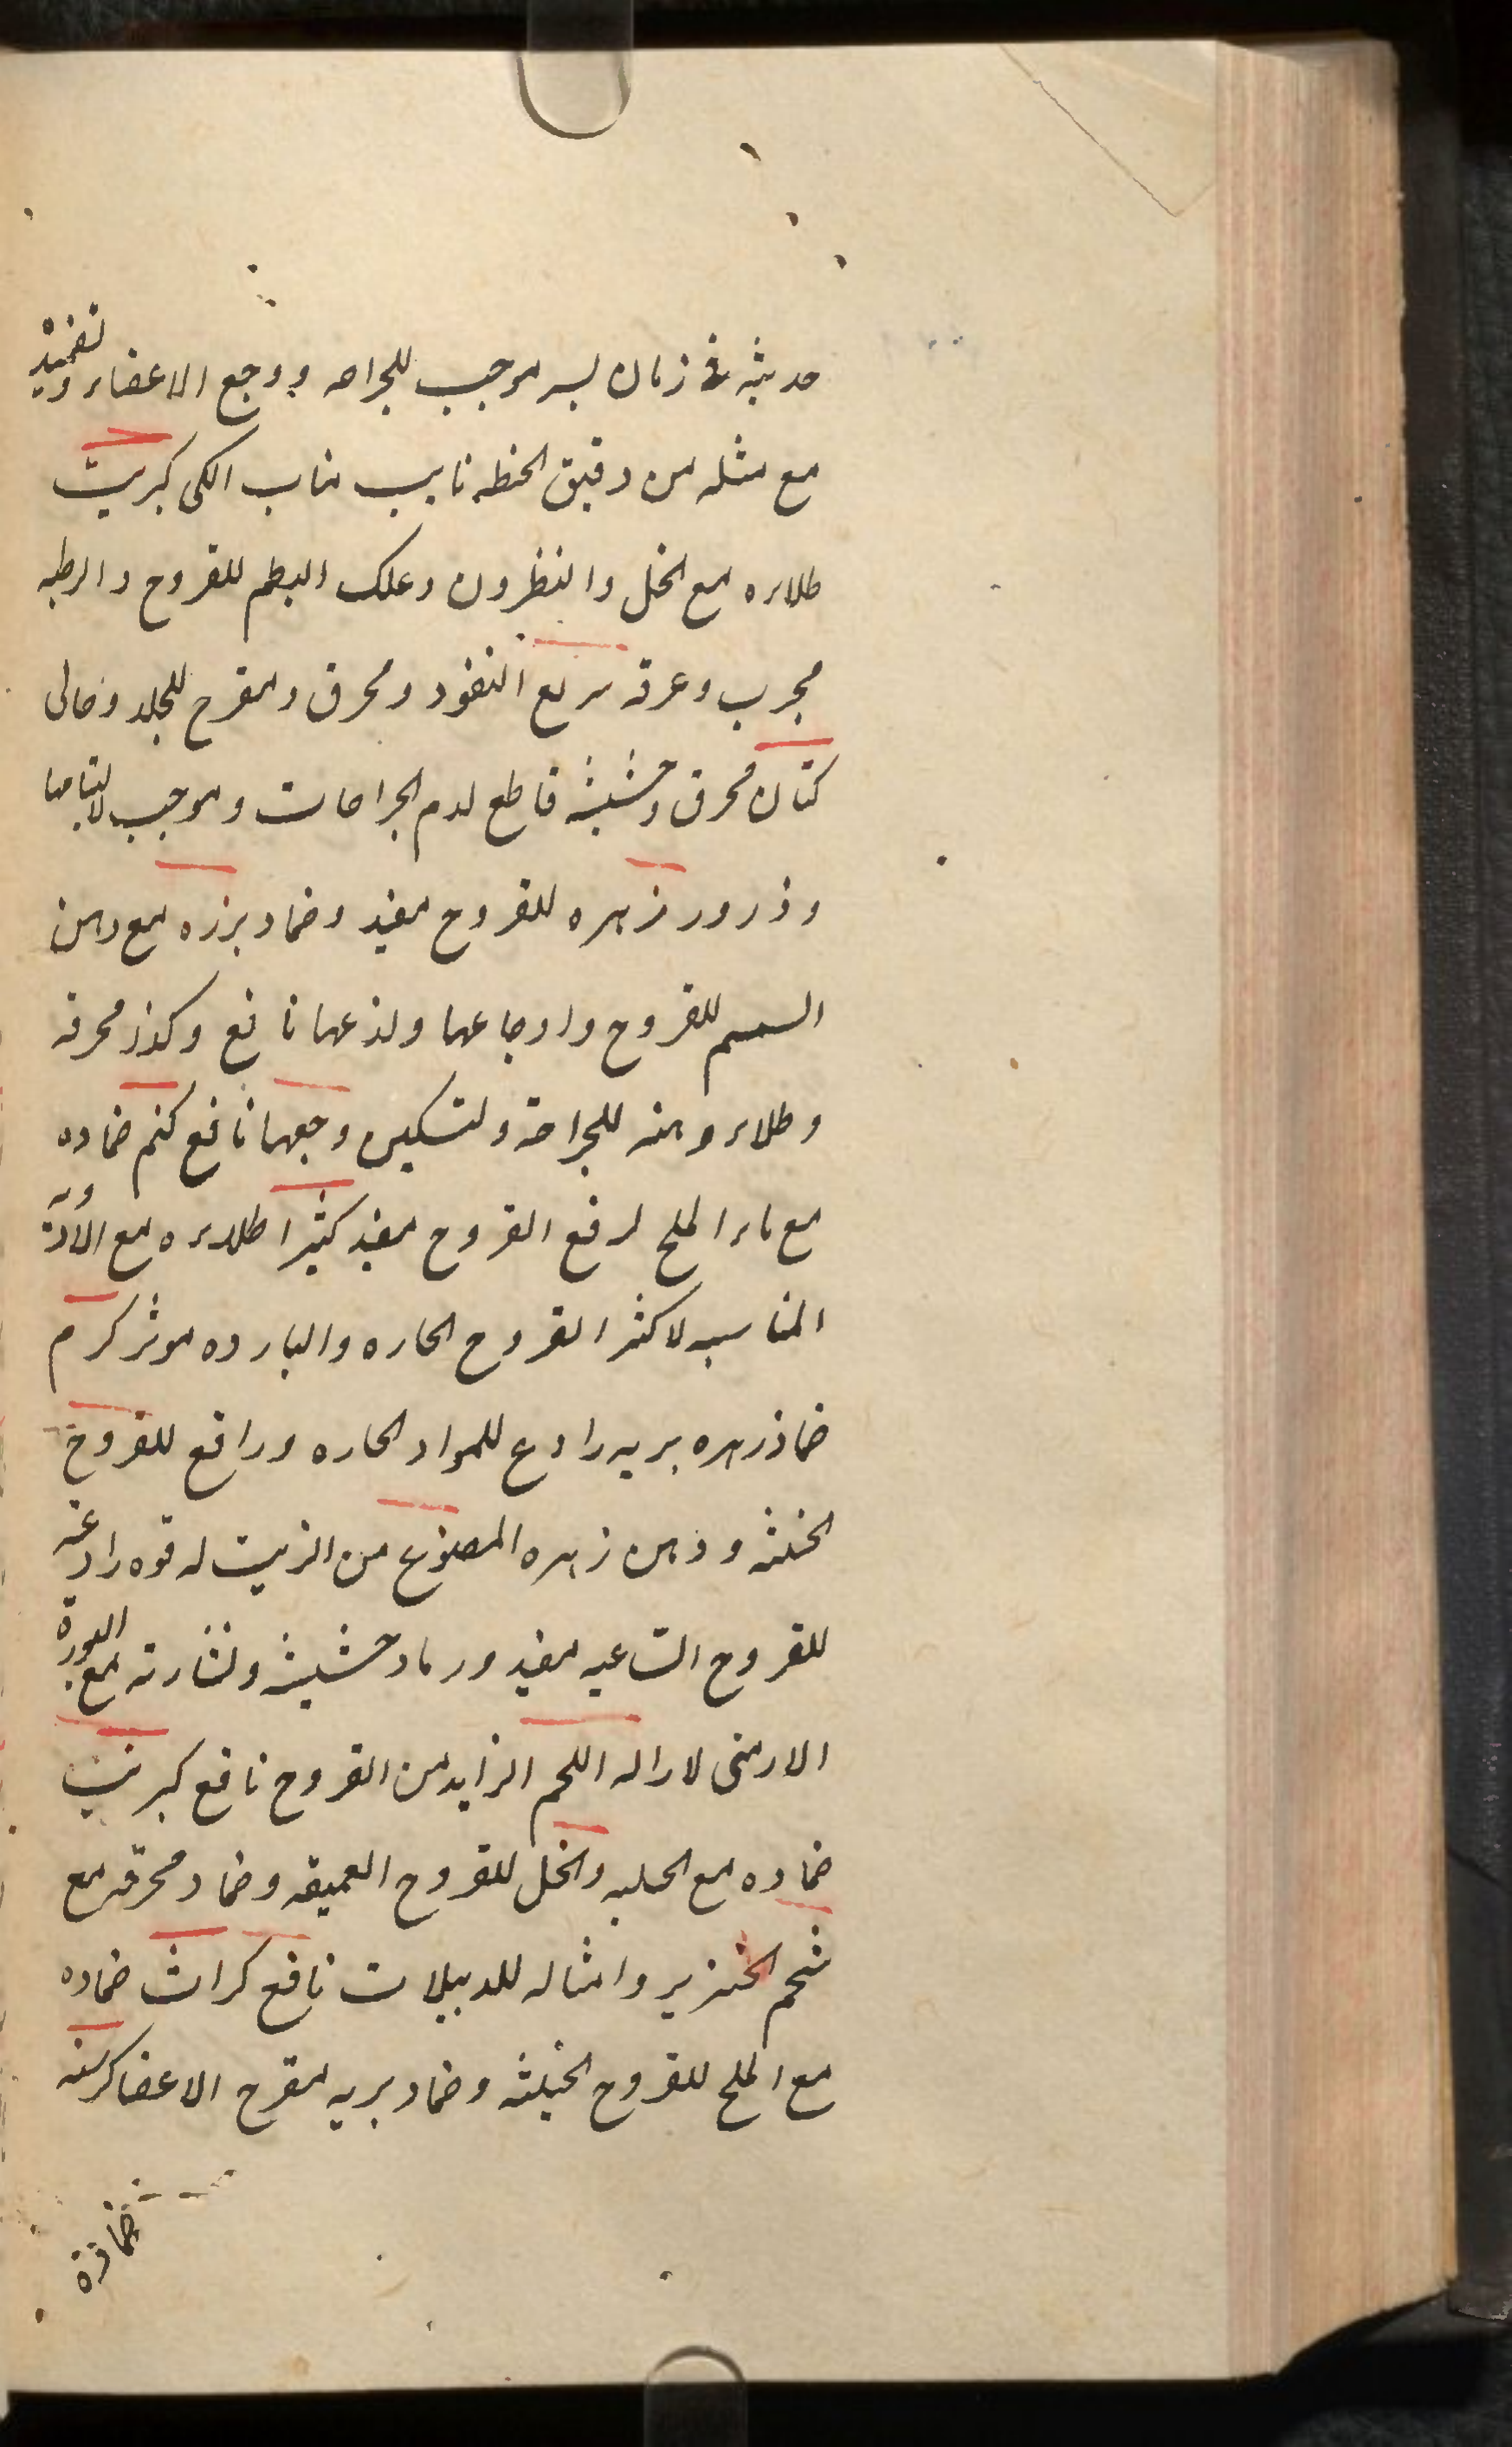 حديثه في زمان يسير موجب للجراحه ووجع الاعضاء وتضميد
مع مثله من دقيق الحنطه نايب مناب الكى كبريت
طلاءه مع الخل والنطرون وعلك البطم للقروح والرطبه
مجرب وعرقه سريع النفود ومحرق ومقرح للجلد وخالى
كتان محرق وحشيشه قاطع لدم الجراحات وموجب لالتيامها
وذرور زهره للقروح مفيد وضماد بزره مع دهن
السمسم للقروح واوجاعها ولذعها نافع وكذا محرقه
وطلاء دهنه للجراحة ولتسكين وجعها نافع كتم ضماده
مع ماء الملح لرفع القروح مفيد كثيرا طلاءه مع الأدوية
المناسبه لاكثر القروح الحاره والبارده موثر كرم
ضماد زهره بريه رادع للمواد الحاره ورافع للقروح
الخبيثه ودهن زهره المصنوع من الزيت له قوه رادعه
للقروح الساعيه مفيد ورماد حشيشه ونشارته مع البورة
الارمنى لازاله اللحم الزايد من القروح نافع كبريت
ضماده مع الحلبه والخل للقروح العميقه وضماد محرقه مع
شحم الخنزير وامثاله للدبيلات نافع كراث ضماده
مع الملح للقروح الخبيثه وضماد بريه لمقرح الاعضا كرسنه
ضماده